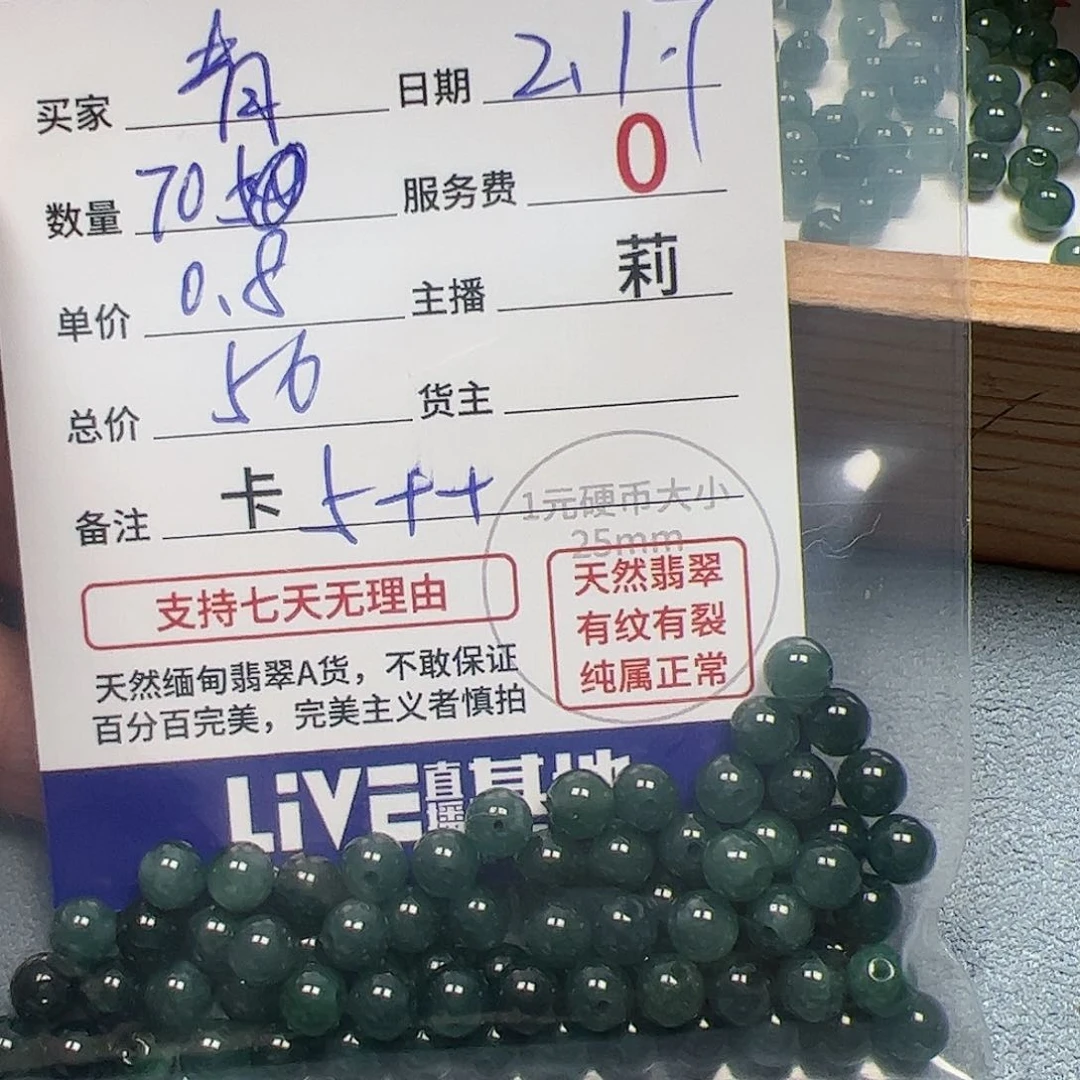 买家 青 日期 2.17
数量 70 服务费 0
单价 0.8 主播 莉
总价 56 货主
备注 卡 5++
1元硬币大小
25mm
支持七天无理由
天然翡翠
有纹有裂
纯属正常
天然缅甸翡翠A货，不敢保证
百分百完美，完美主义者慎拍
LiVE直播基地